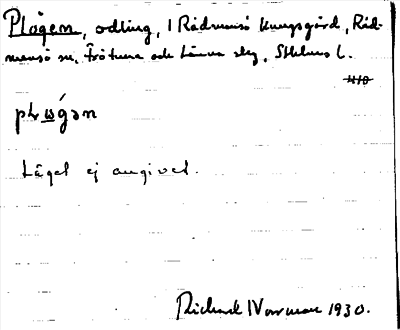 Plogen, odling, i Rådmansö kungsgård, Råd-
mansö sn, Frötuna och Länna skg, Sthlms l.
plωgən
Läget ej angivet.
Richard Norrman 1930.